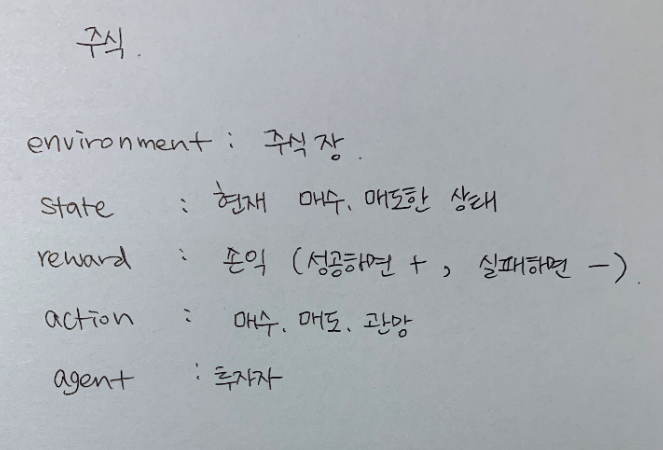 주식.
environment : 주식장.
state : 현재 매수, 매도한 상태
reward : 손익 (성공하면 +, 실패하면 -).
action : 매수, 매도, 관망
agent : 투자자